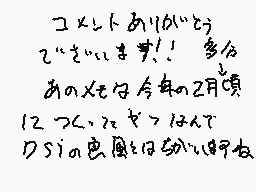 コメントありがとう
ございます!! 多分
あのメモは今年の2月頃
につくってやつなんで
DSiの画風とはちがいますね